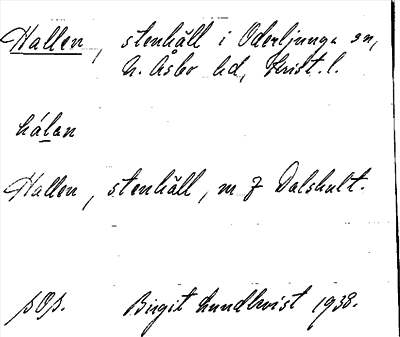 Hallen, stenhäll i Oderljunga sn,
N. Åsbo hd, Krist. l.
hálan
Hallen, stenhäll, m f Dalshult.
pOp. Birgit Lundkvist 1938.